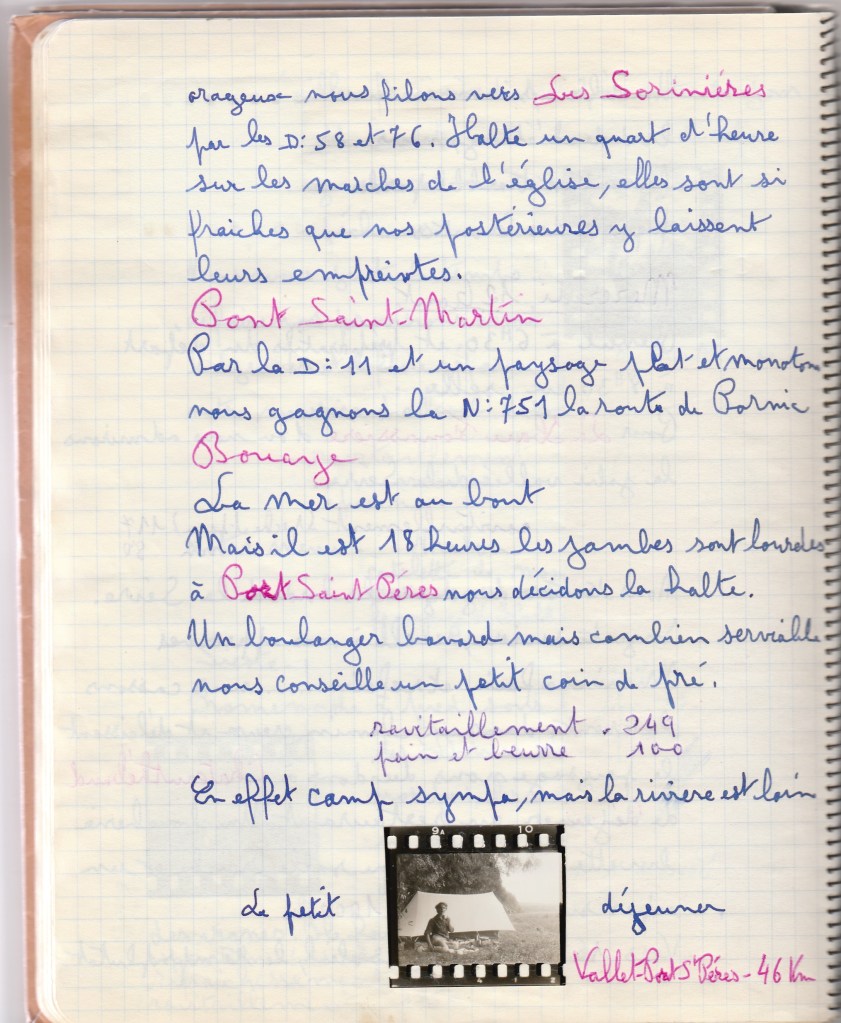 orageux nous filons vers Les Sorinières
par les D: 58 et 76. Halte un quart d'heure
sur les marches de l'église, elles sont si
fraiches que nos postérieures y laissent
leurs empreintes.
Pont Saint-Martin
Par la D: 11 et un paysage plat et monotone
nous gagnons la N: 751 la route de Pornic
Bouaye
La mer est au bout
Mais il est 18 heures les jambes sont lourdes
à Port Saint Péres nous décidons la halte.
Un boulanger bavard mais combien serviable
nous conseille un petit coin de pré.
ravitaillement . 249
pain et beurre 100
En effet camp sympa, mais la riviere est loin
9A 10
Le petit déjeuner
Vallet-Port St Péres - 46 Km